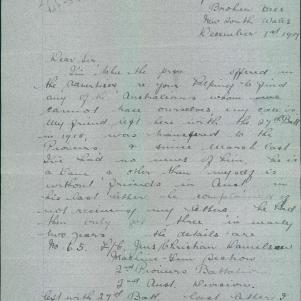 Broken Hill
New South Wales
December 1st 1917
Dear Sir,
I take the offered in
the Advertiser re your helping to find
any of the Australians whom we
cannot trace ourselves, my case is
My friend left here with the 27th Batt
in 1915, was transfered to the
Pioneers, & since March last
I've had no news of him. He is
a Dane & other than myself is
without friends in Aust in
his last letter he complained of
not receiving my letters he had
then only got three in nearly
two years. The details are
No 65. Christian Danielsen
Machine-Gun Section
2nd Pioneers Battalion
2nd Aust. Division.
Left with 27th Batt last letter